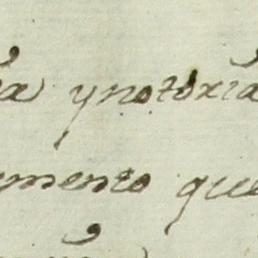 ynotoria
mento que